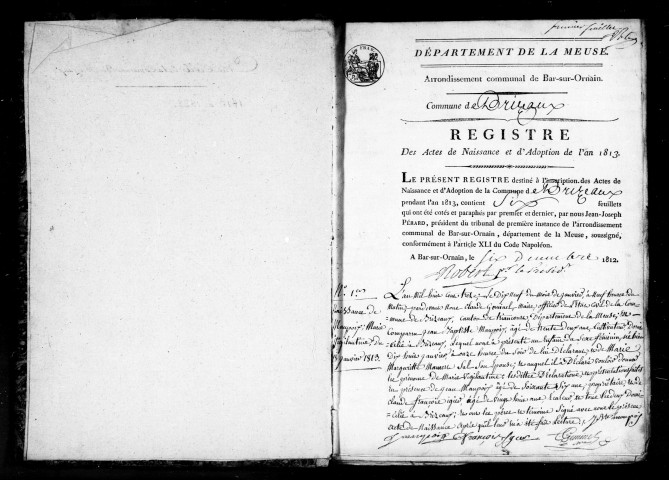 premier feuillet
DÉPARTEMENT DE LA MEUSE.
Arrondissement communal de Bar-sur-Ornain.
Commune de Brizeaux
REGISTRE
Des Actes de Naissance et d'Adoption de l'an 1813.
LE PRÉSENT REGISTRE destiné à l'inscription des Actes de
Naissance et d'Adoption de la Commune de Brizeaux
pendant l'an 1813, contient Six feuillets
qui ont été cotés et paraphés par premier et dernier, par nous Jean-Joseph
PÉRARD, président du tribunal de première instance de l'arrondissement
communal de Bar-sur-Ornain, département de la Meuse, soussigné,
conformément à l'article XLI du Code Napoléon.
A Bar-sur-Ornain, le six décembre 1812.
N.° 1.er
Naissance de
Marie
Vigilantine, du
janvier 1813.
L'an Mil huit cent treize, le dix neuf du mois de janvier, à neuf heures du
matin, pardevant Nous Claude maire, officier de l'état civil de la Com-
mune de Brizeaux, canton de triaucourt, Département de la Meuse, est
Comparu jean Baptiste âgé de trente deux ans, cultivateur domi-
cilié à Brizeaux, lequel nous a présenté un enfant du sexe féminin, né hier
dix huit janvier, à onze heures du soir de lui déclarant et de Marie
Margueritte son épouse, et auquel il a déclaré vouloir donner
le prénom de Marie Vigilantine, lesdittes Déclaration et présentation faites
en présence de jean âgé de soixante six ans, propriétaire, et de
claude françois âgé de vingt trois ans, tous deux domi-
cilié à Brizeaux, et ont les père et témoins signé avec nous le présent
acte de Naissance après qu'il leur en a été fait lecture.